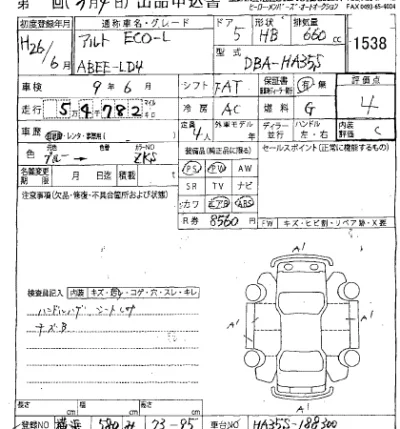 第 回(3月4日) 出品申込書
ヒーローメンバーズ・オートオークション FAX 0493-45-4004
初度登録年月 通称車名・グレード ドア 形状 排気量
H26/6月 アルト ECO-L 5 HB 660cc 1538
型式
ABEE-LD4 DBA-HA35S
車検 9年6月 シフト FAT 保証書 有・無 評価点
走行 5万4782 マイル 冷房 AC 燃料 G 4
車歴 レンタ・事務用( ) 定員 4人 外車モデル年 ディーラー 並行 ハンドル 左・右 内装評価 C
色 元色 ブルー→ 色 カラーNO ZKS 装備品(純正品に限る) セールスポイント(正常に機能するもの)
名義変更期限 月 日迄 積載 t PS PW AW
SR TV ナビ
注意事項(欠品・修復・不具合箇所および状態) カワ エアB ABS
R券 8560円 FW キズ・ヒビ割・リペア跡・X要
A1
検査員記入 内装 キズ・汚レ・コゲ・穴・スレ・キレ
ハンドル シート
キズB
A1 A1 A1
A1
長さ cm 幅 cm 高さ cm
登録NO 横浜 580 み 73-95 車台NO HA35S-188300